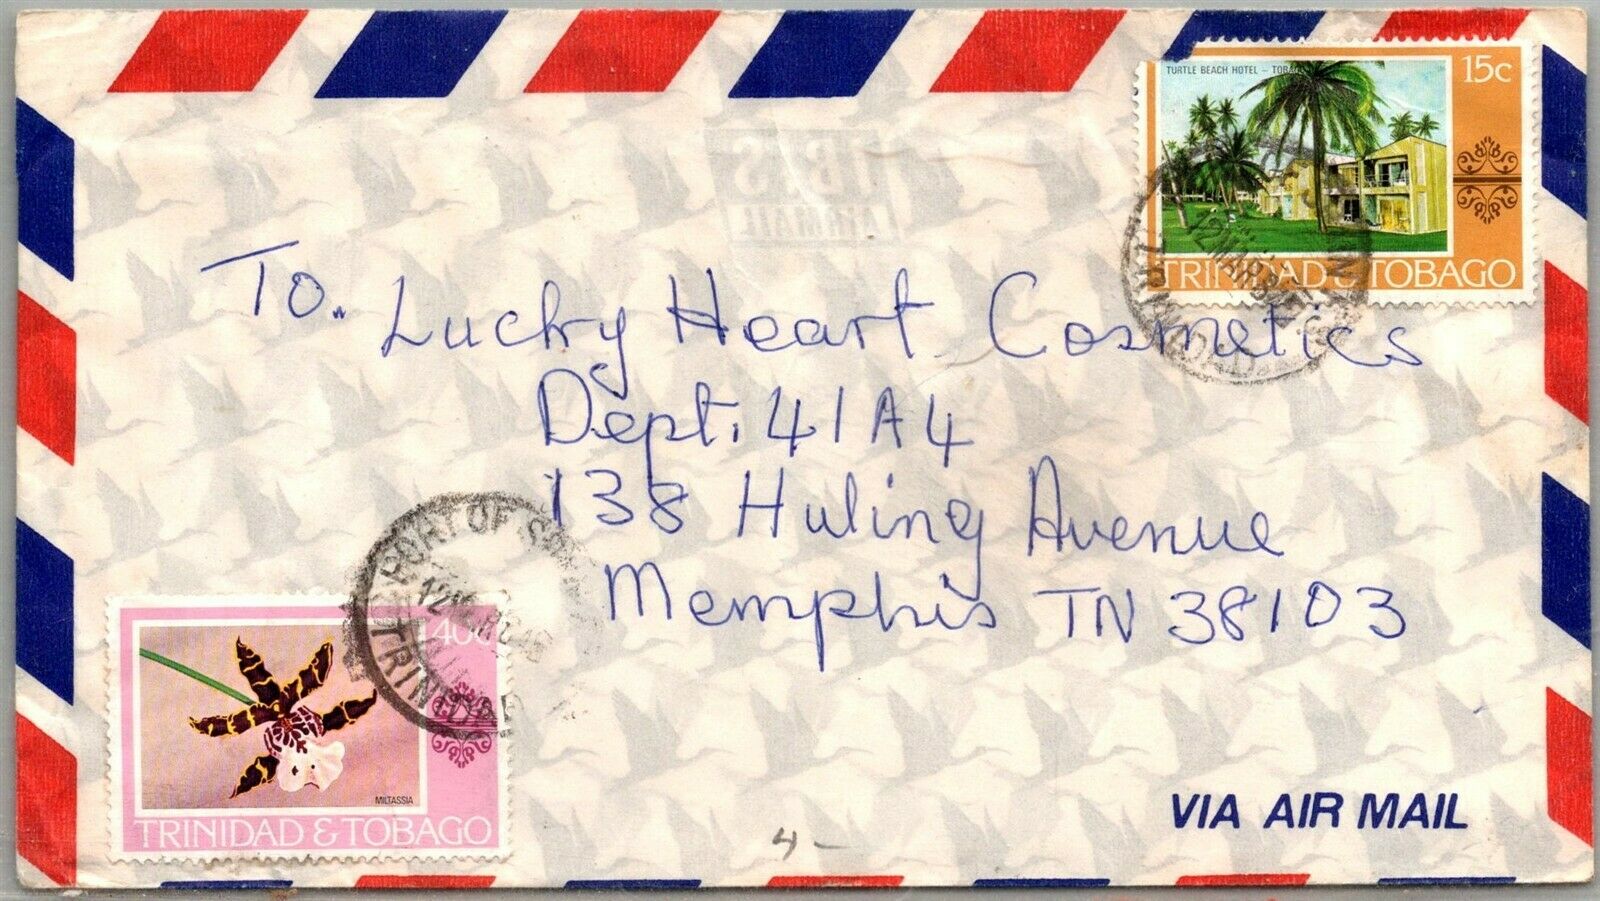 TURTLE BEACH HOTEL –
15c
TRINIDAD & TOBAGO
To. Lucky Heart Cosmetics
Dept. 41A4
138 Huling Avenue
Memphis TN 38103
PORT OF
TRINIDAD
40c
MILTASSIA
TRINIDAD & TOBAGO
VIA AIR MAIL
4 –